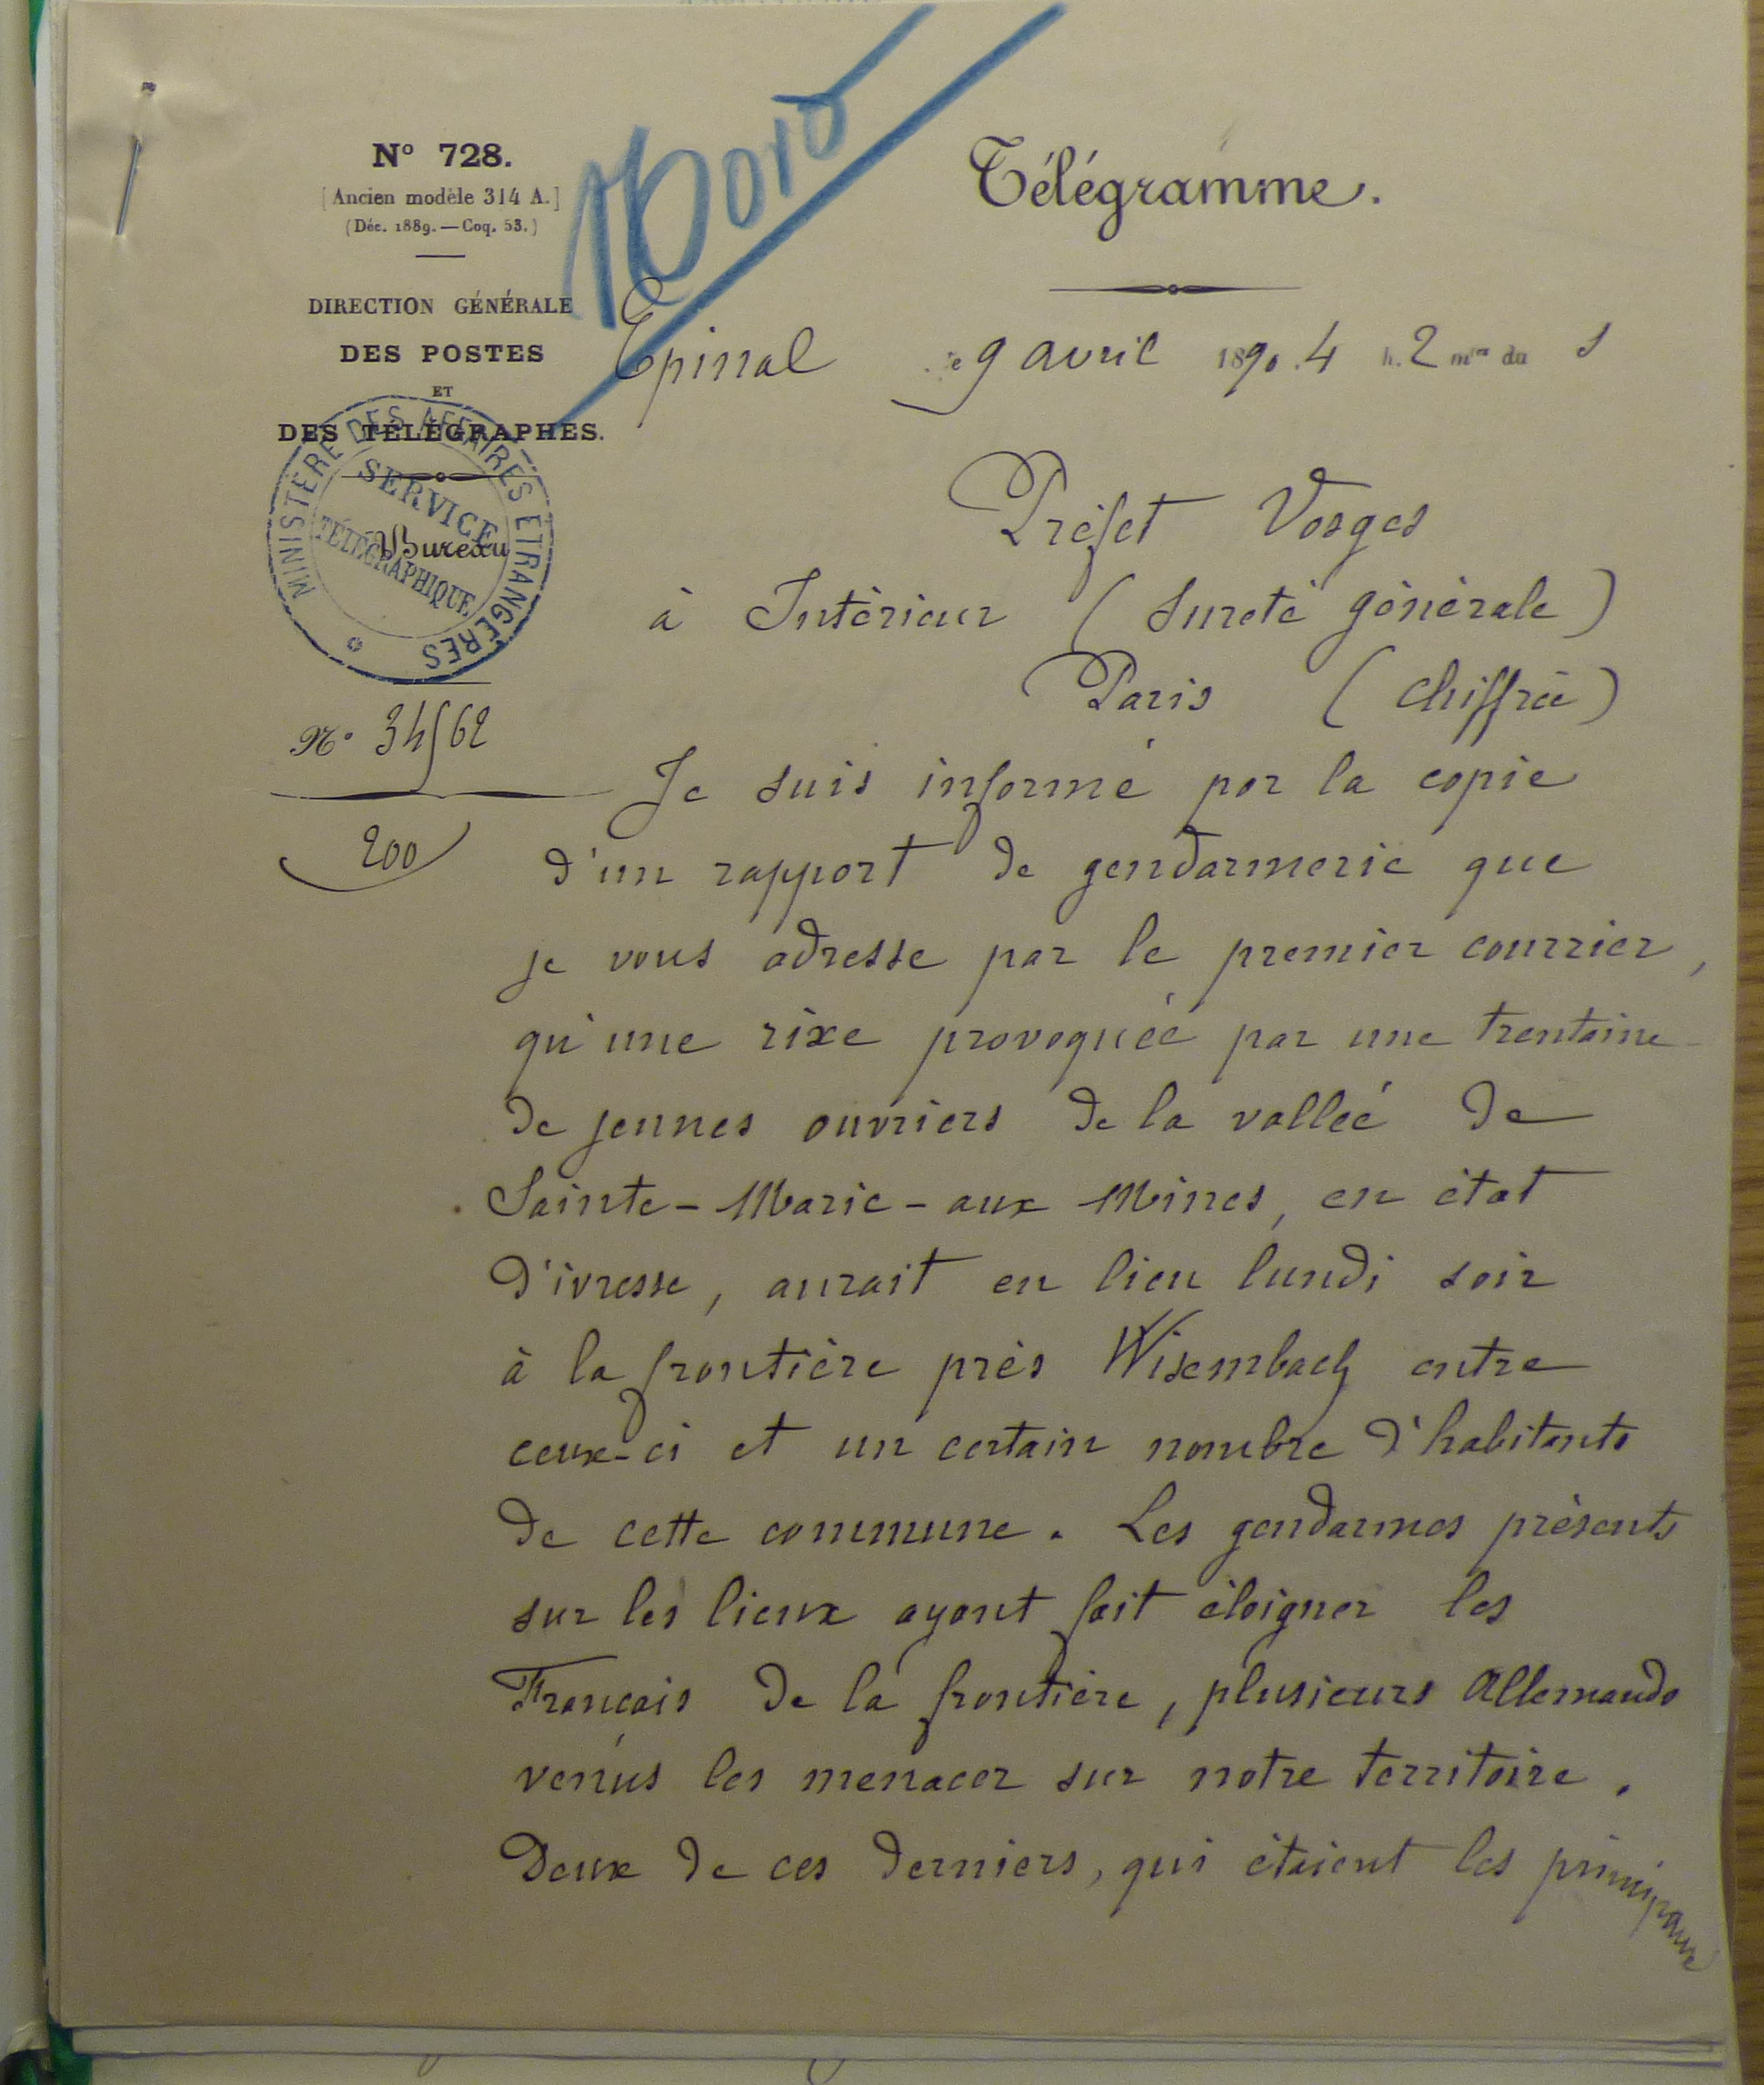 N° 728.
[Ancien modèle 314 A.]
(Déc. 1889. — Coq. 53.)
DIRECTION GÉNÉRALE
DES POSTES
ET
DES TÉLÉGRAPHES.
MINISTÈRE DES AFFAIRES ETRANGÈRES
SERVICE
TÉLÉGRAPHIQUE
Bureau
N° 34562
200
Télégramme.
Epinal le 9 avril 1890. 4 h. 2 mes du s
Préfet Vosges
à Intérieur (Sureté générale)
Paris (chiffrée)
Je suis informé par la copie
d'un rapport de gendarmerie que
je vous adresse par le premier courrier,
qu'une rixe provoquée par une trentaine
de jeunes ouvriers de la vallée de
Sainte-Marie-aux Mines, en état
d'ivresse, aurait eu lieu lundi soir
à la frontière près Wisembach entre
ceux-ci et un certain nombre d'habitants
de cette commune. Les gendarmes présents
sur les lieux ayant fait éloigner les
Français de la frontière, plusieurs Allemands
venus les menacer sur notre territoire.
Deux de ces derniers, qui étaient les principaux